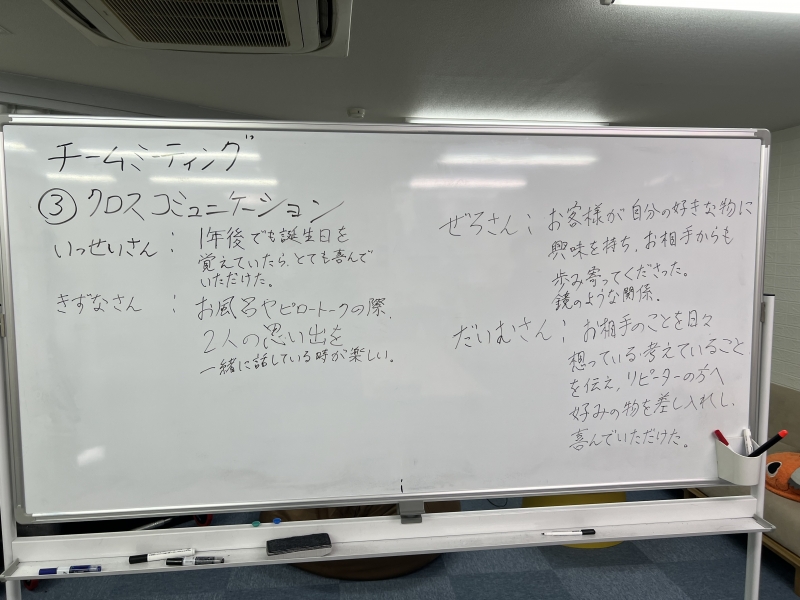 チームミーティング
③クロスコミュニケーション
いっせいさん：1年後でも誕生日を
覚えていたら、とても喜んで
いただけた。
きずなさん：お風呂やピロートークの際、
2人の思い出を
一緒に話している時が楽しい。
ぜろさん：お客様が自分の好きな物に
興味を持ち、お相手からも
歩み寄ってくださった。
鏡のような関係。
だいむさん：お相手のことを日々
想っている・考えていること
を伝え、リピーターの方へ
好みの物を差し入れし、
喜んでいただけた。